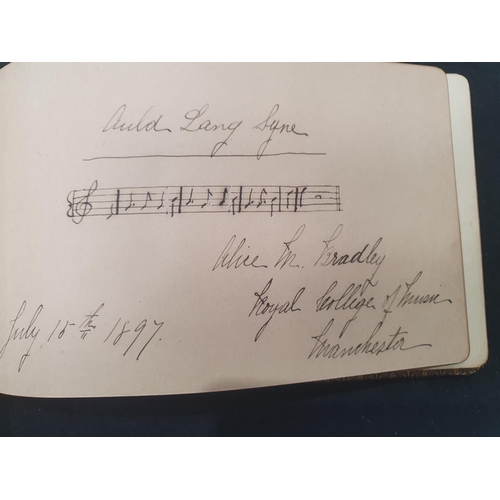 Auld Lang Syne
Alice M. Bradley
Royal College of Music
Manchester
July 15th 1897.